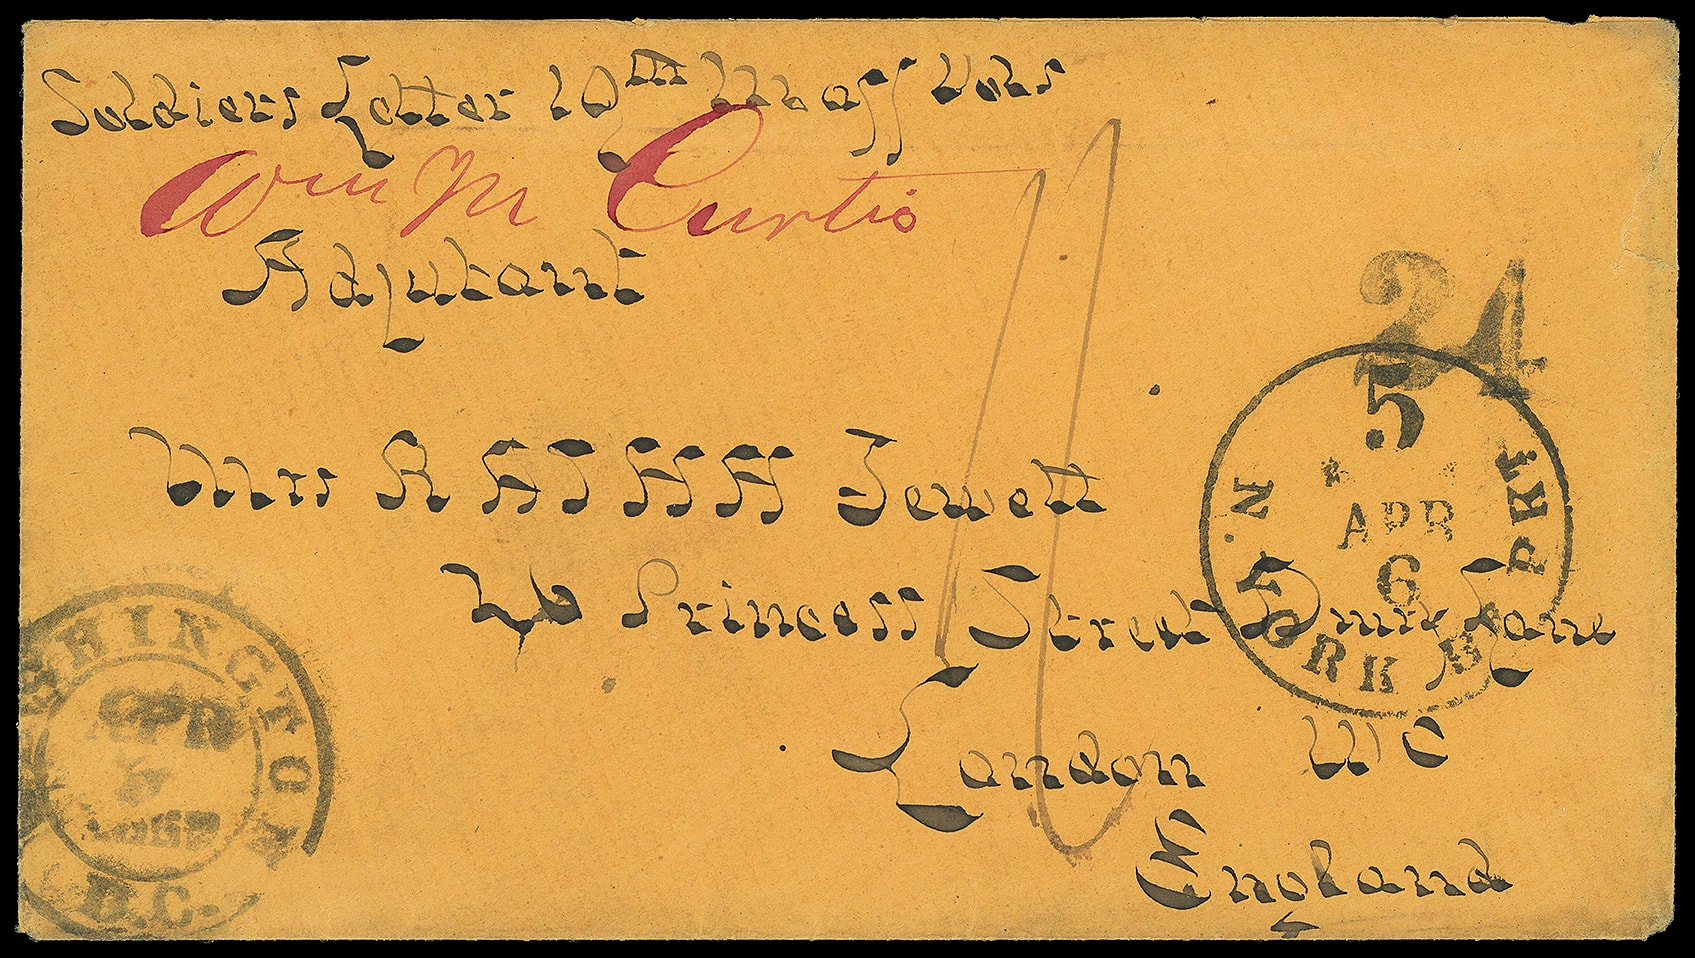 Soldiers Letter 10th Mass Vols
Wm M Curtis
Adjutant
24
Mrs R A I H H Jewett
Princess Street Drury Lane
London W C
England
N. YORK BR PKT
5
APR
6
WASHINGTON
APR
D.C.
1/